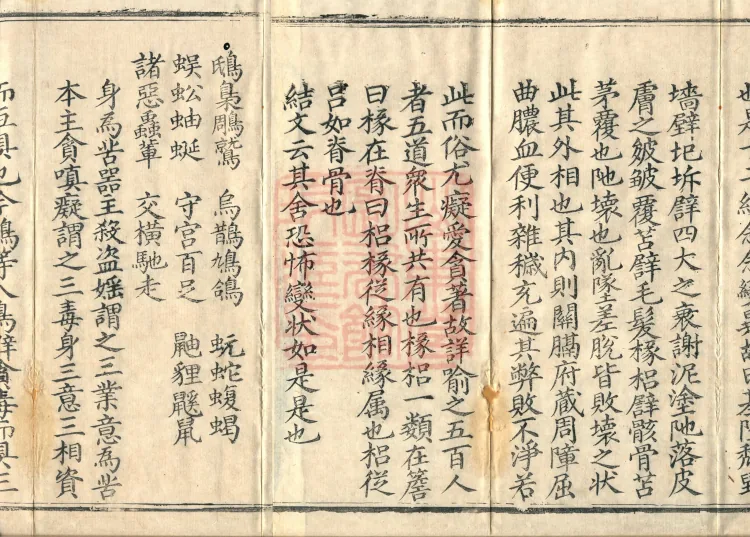 墻壁圮坼譬四大之衰謝泥塗阤落皮
膚之皴皺覆苫譬毛髮椽梠譬骸骨苫
茅覆也阤壞也亂墜差脫皆敗壞之狀
此其外相也其内則關膈府藏周障屈
曲膿血便利雜穢充遍其弊敗不淨若
此而俗尤癡愛貪著故詳喻之五百人
者五道衆生所共有也椽梠一類在簷
曰椽在脊曰梠椽従緣相緣属也梠従
呂如脊骨也
結文云其舍恐怖變状如是是也
鴟梟鵰鷲　烏鵲鳩鴿　蚖蛇蝮蝎
蜈蚣蚰蜒　守宮百足　鼬貍鼷鼠
諸惡蟲輩　交橫馳走
身為苦器王殺盜婬謂之三業意為苦
本主貪嗔癡謂之三毒身三意三相資